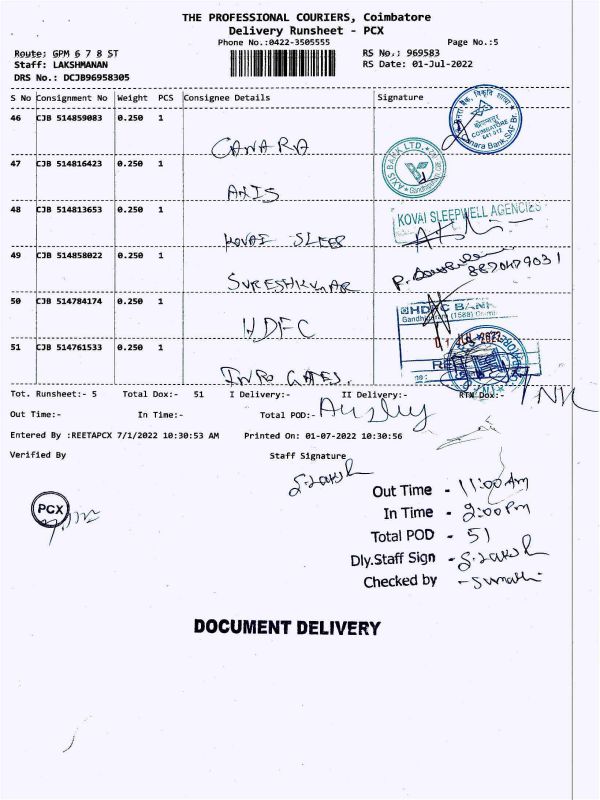 THE PROFESSIONAL COURIERS, Coimbatore
Delivery Runsheet - PCX
Phone No.:0422-3505555 Page No.:5
Route: GPM 6 7 8 ST RS No.: 969583
Staff: LAKSHMANAN RS Date: 01-Jul-2022
DRS No.: DCJB96958305
S No Consignment No Weight PCS Consignee Details Signature
46 CJB 514859083 0.250 1
CANARA
COIMBATORE
Canara Bank, SAF Br.
47 CJB 514816423 0.250 1
AXIS BANK LTD.
AXIS
48 CJB 514813653 0.250 1
KOVAI SLEEPWELL AGENCIES
KOVAI SLEEP
49 CJB 514858022 0.250 1
SURESHKUMAR
8870479031
50 CJB 514784174 0.250 1
HDFC BANK
Gandhipuram (1588)
HDFC
51 CJB 514761533 0.250 1
INFO GATES.
Tot. Runsheet:- 5 Total Dox:- 51 I Delivery:- II Delivery:- RTN Dox:-
Out Time:- In Time:- Total POD:-
Entered By :REETAPCX 7/1/2022 10:30:53 AM Printed On: 01-07-2022 10:30:56
Verified By Staff Signature
PCX
Out Time - 11:00 Am
In Time - 2:00 Pm
Total POD - 51
Dly.Staff Sign - S.Laksh
Checked by - Sumathi
DOCUMENT DELIVERY